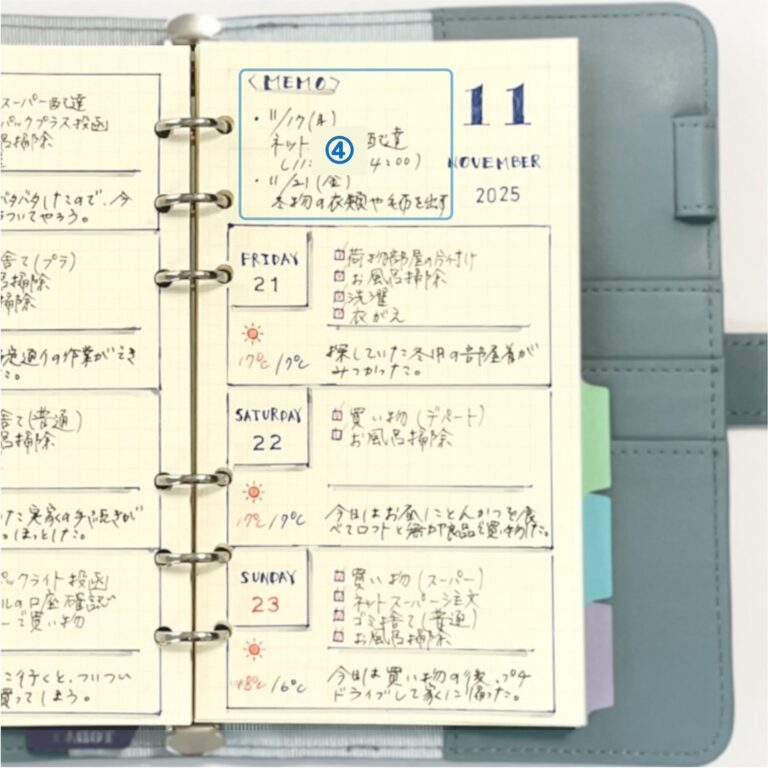 スーパー配達
パックプラス投函
呂掃除
バタバタしたので、今
ついてやろう。
舎て(プラ)
呂掃除
掃除
通りの作業ができ
た。
舎て(普通)
呂掃除
た実家の手続きが
。ほっとした。
パックライト投函
ルの口座確認
ーで買い物
こ行くと、ついつい
買ってしまう。
〈MEMO〉
・11/17(月)
ネット ④ 配達
4200)
・11/21(金)
冬物の衣類や毛布を出す
11
NOVEMBER
2025
FRIDAY
21
荷物部屋の片付け
お風呂掃除
洗濯
衣がえ
17℃/7℃
探していた冬用の部屋着が
みつかった。
SATURDAY
22
買い物(デパート)
お風呂掃除
17℃/7℃
今日はお昼にとんかつを食
べてロフトと無印良品で買い物した。
SUNDAY
23
買い物(スーパー)
ネットスーパー注文
ゴミ捨て(普通)
お風呂掃除
18℃/6℃
今日は買い物の後、プチ
ドライブして家に帰った。